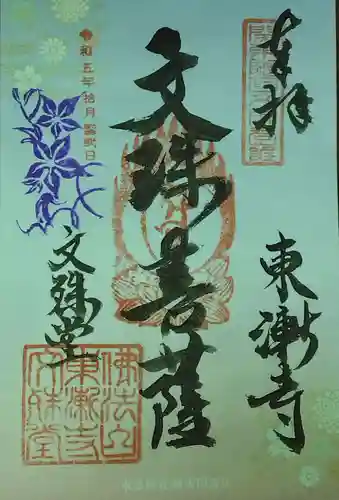 奉拝
東漸寺
文殊菩薩
令和五年拾月
文殊堂
佛法山
東漸寺
文殊堂